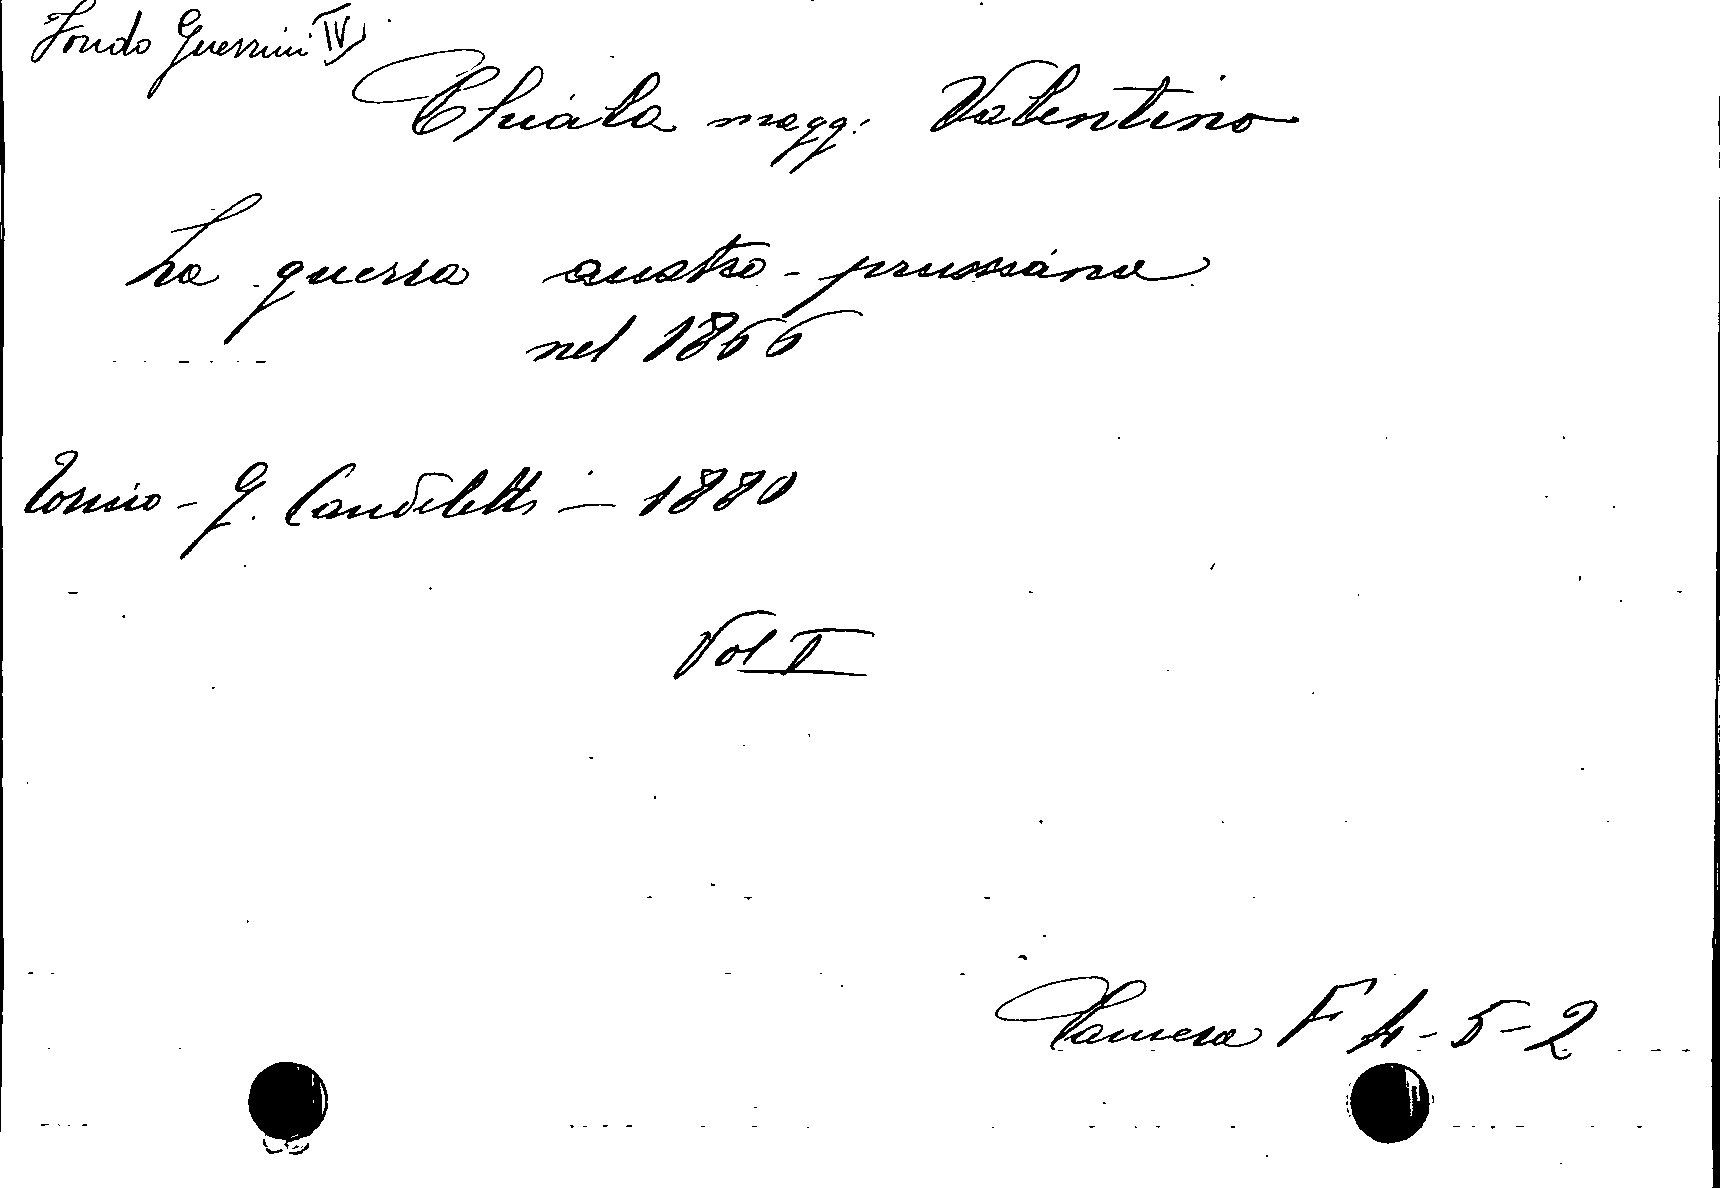 Fondo Guerrini IV
Chiala magg: Valentino
La guerra austro-prussiana
nel 1866
Torino - G. Candeletti - 1880
Vol I
Camera F 4-5-2